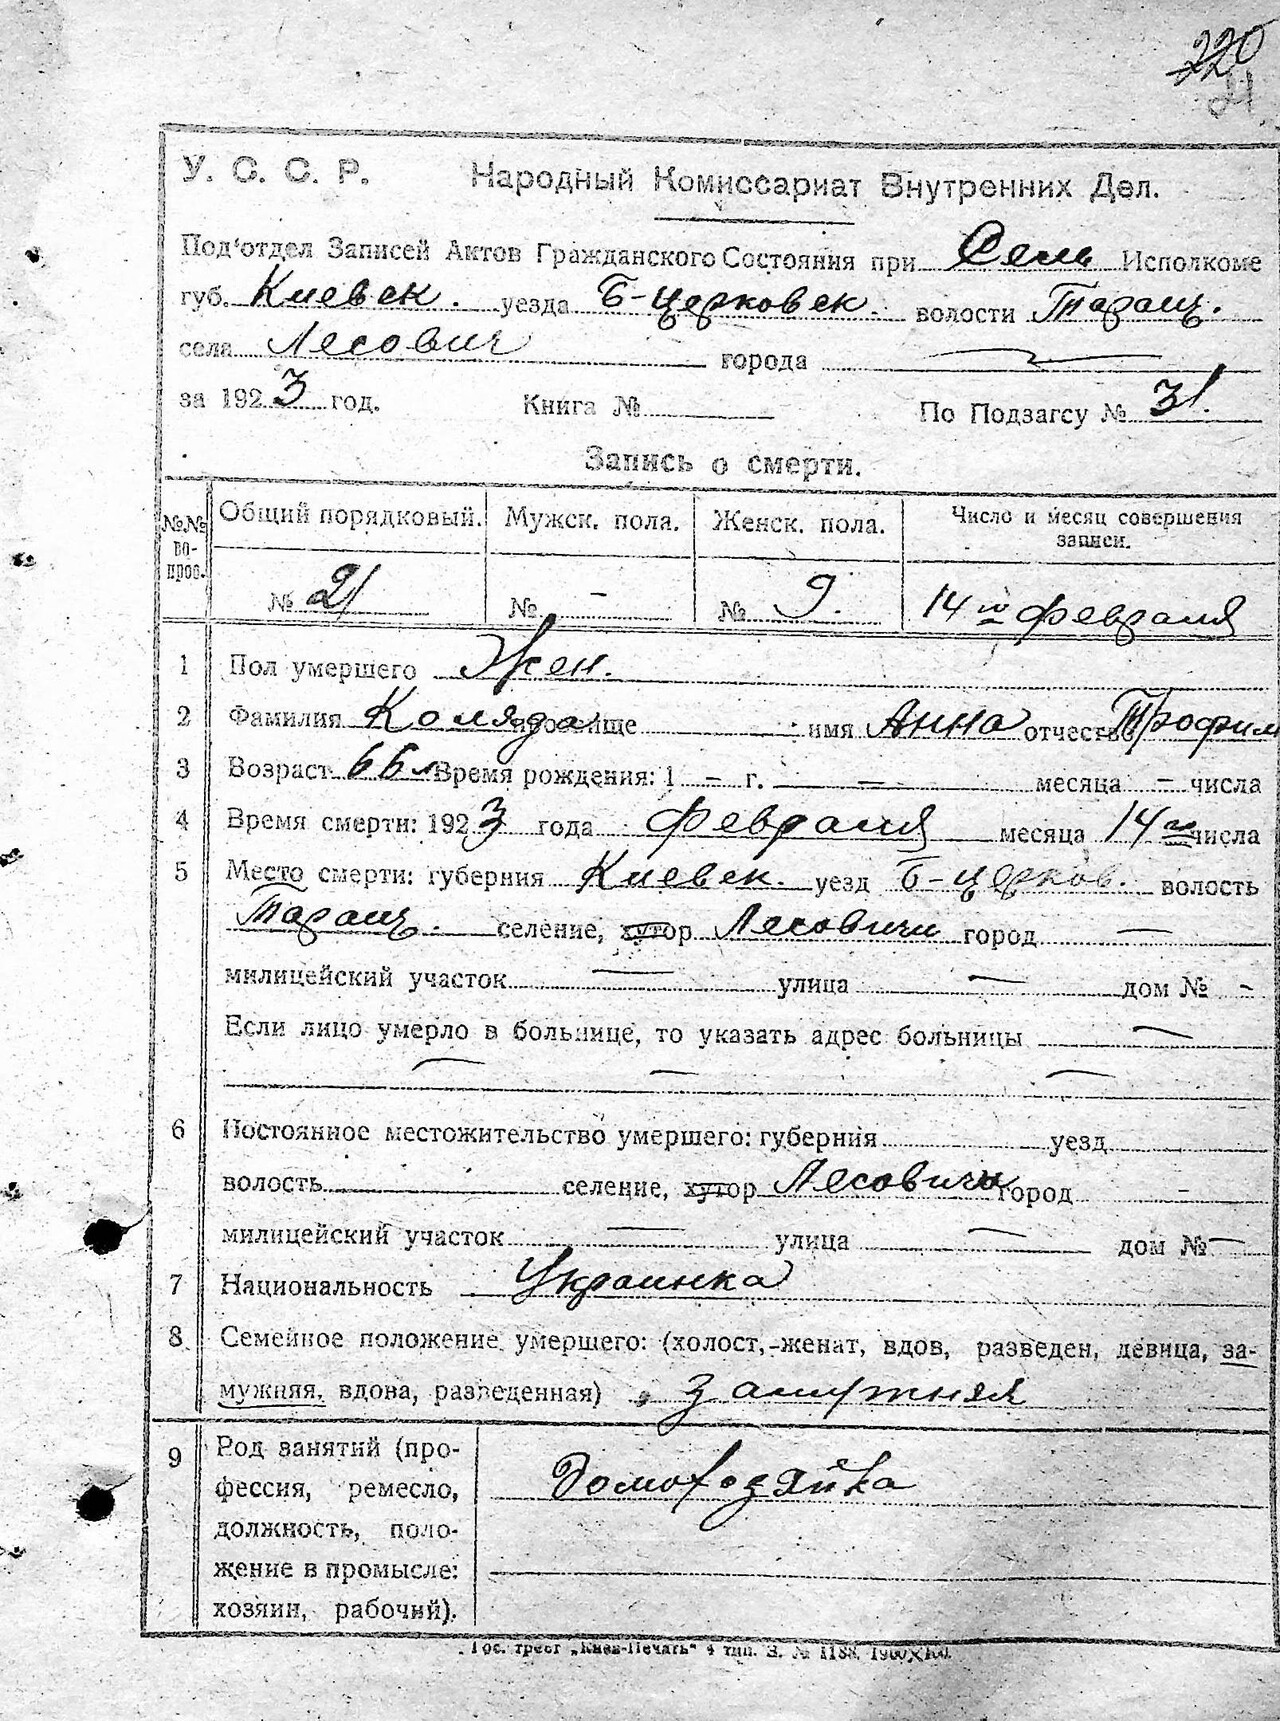 220
21
У. С. С. Р. Народный Комиссариат Внутренних Дел.
Под'отдел Записей Актов Гражданского Состояния при Сель Исполкоме
губ. Киевск. уезда Б-церковск. волости Таращ.
села Лесович города —
за 1923 год. Книга № По Подзагсу № 31.
Запись о смерти.
№№ во-прос. Общий порядковый. Мужск. пола. Женск. пола. Число и месяц совершения записи.
№ 21 № - № 9. 14го февраля
1 Пол умершего Жен.
2 Фамилия Коляда прозвище имя Анна отчество Трофим
3 Возраст 66 л Время рождения: 1 — г. — месяца — числа
4 Время смерти: 1923 года февраля месяца 14го числа
5 Место смерти: губерния Киевск. уезд Б-церков. волость
Таращ. селение, хутор Лесовичи город —
милицейский участок — улица — дом № -
Если лицо умерло в больнице, то указать адрес больницы —
— — —
6 Постоянное местожительство умершего: губерния уезд
волость селение, хутор Лесовичи город -
милицейский участок — улица — дом № —
7 Национальность Украинка
8 Семейное положение умершего: (холост,-женат, вдов, разведен, девица, за-
мужняя, вдова, разведенная) замужняя
9 Род занятий (про-
фессия, ремесло,
должность, поло-
жение в промысле:
хозяин, рабочий).
Домохозяйка
Гос. трест „Киев-Печать" 4 тип. З. № 1188. 1900×100.